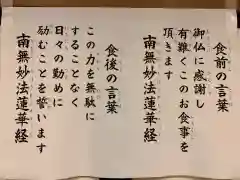 食前の言葉
御仏に感謝し
有難くこのお食事を
頂きます
南無妙法蓮華経
食後の言葉
この力を無駄に
することなく
日々の勤めに
励むことを誓います
南無妙法蓮華経